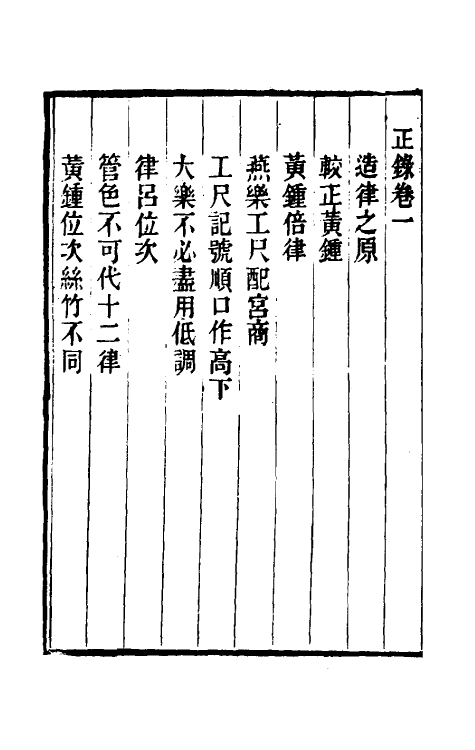 正錄卷一
造律之原
較正黃鍾
黃鍾倍律
燕樂工尺配宮商
工尺記號順口作高下
大樂不必盡用低調
律呂位次
管色不可代十二律
黃鍾位次絲竹不同